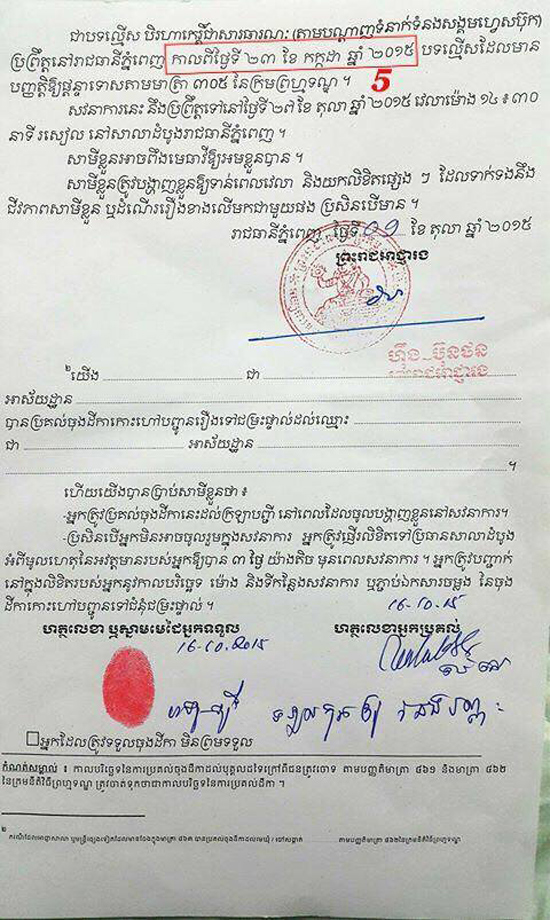 ជាបទល្មើស បរិហាកេរ្តិ៍ជាសាធារណៈ (តាមបណ្តាញទំនាក់ទំនងសង្គមហ្វេសប៊ុក)
ប្រព្រឹត្តនៅរាជធានីភ្នំពេញ កាលពីថ្ងៃទី ២៣ ខែ កក្កដា ឆ្នាំ ២០១៥ បទល្មើសដែលមាន
បញ្ញត្តិឱ្យផ្តន្ទាទោសតាមមាត្រា ៣០៥ នៃក្រមព្រហ្មទណ្ឌ ។ 5
សវនាការនេះ នឹងប្រព្រឹត្តទៅនៅថ្ងៃទី ២៧ ខែ តុលា ឆ្នាំ ២០១៥ វេលាម៉ោង ១៤ ៖ ៣០
នាទី រសៀល នៅសាលាដំបូងរាជធានីភ្នំពេញ ។
សាមីខ្លួនអាចពឹងមេធាវីឱ្យអមខ្លួនបាន ។
សាមីខ្លួនត្រូវបង្ហាញខ្លួនឱ្យទាន់ពេលវេលា និងយកលិខិតផ្សេង ៗ ដែលទាក់ទងនឹង
ជីវភាពសាមីខ្លួន ឬដំណើររឿងខាងលើមកជាមួយផង ប្រសិនបើមាន ។
រាជធានីភ្នំពេញ ថ្ងៃទី 09 ខែ តុលា ឆ្នាំ ២០១៥
ព្រះរាជអាជ្ញារង
ហ៊ឹង ប៊ុនផន
ព្រះរាជអាជ្ញារង
២ យើង ជា
អាស័យដ្ឋាន
បានប្រគល់ចុងដីកាកោះហៅបញ្ជូនរឿងទៅជម្រះផ្ទាល់ដល់ឈ្មោះ
ជា អាស័យដ្ឋាន
។
ហើយយើងបានប្រាប់សាមីខ្លួនថា ៖
-អ្នកត្រូវប្រគល់ចុងដីកានេះដល់ក្រឡាបញ្ជី នៅពេលដែលចូលបង្ហាញខ្លួននៅសវនាការ។
-ប្រសិនបើអ្នកមិនអាចចូលរួមក្នុងសវនាការ អ្នកត្រូវផ្ញើរលិខិតទៅប្រធានសាលាដំបូង
អំពីមូលហេតុនៃអវត្តមានរបស់អ្នកឱ្យបាន ៣ ថ្ងៃ យ៉ាងតិច មុនពេលសវនាការ ។ អ្នកត្រូវបញ្ជាក់
នៅក្នុងលិខិតរបស់អ្នកនូវកាលបរិច្ឆេទ ម៉ោង និងទីកន្លែងសវនាការ ឬភ្ជាប់ឯកសារចម្លង នៃចុង
ដីកាកោះហៅបញ្ជូនទៅជំនុំជម្រះផ្ទាល់ ។
16-10-15
ហត្ថលេខា ឬស្នាមមេដៃអ្នកទទួល ហត្ថលេខាអ្នកប្រគល់
16-10.2015
អ្នកដែលត្រូវទទួលចុងដីកា មិនព្រមទទួល
កំណត់សម្គាល់ ៖ កាលបរិច្ឆេទនៃការប្រគល់ចុងដីកាដល់បុគ្គលដទៃក្រៅពីជនត្រូវចោទ តាមបញ្ញត្តិមាត្រា ៤៦១ និងមាត្រា ៤៦២
នៃក្រមនីតិវិធីព្រហ្មទណ្ឌ ត្រូវចាត់ទុកថាជាកាលបរិច្ឆេទនៃការប្រគល់ដីកា ។
២